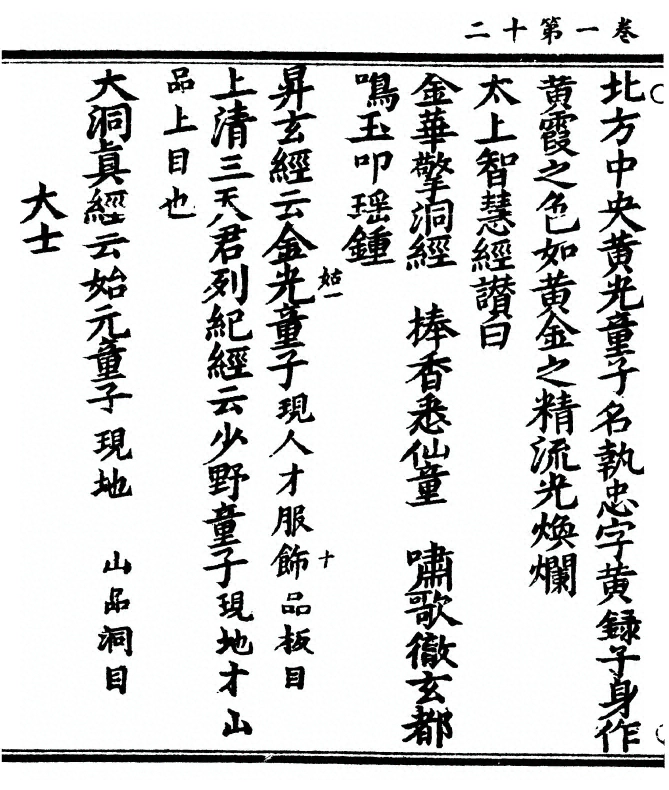 卷一第十二
北方中央黄光童子名執忠字黄録子身作
黄霞之色如黄金之精流光煥爛
太上智慧經讃曰
金華擎洞經　捧香悉仙童　嘯歌徹玄都
鳴玉叩瑶鍾
昇玄經云金光童子現人才服飾品板目
姑一
十
上清三天君列紀經云少野童子現地才山
品上目也
大洞眞經云始元童子現地　山品洞目
大士